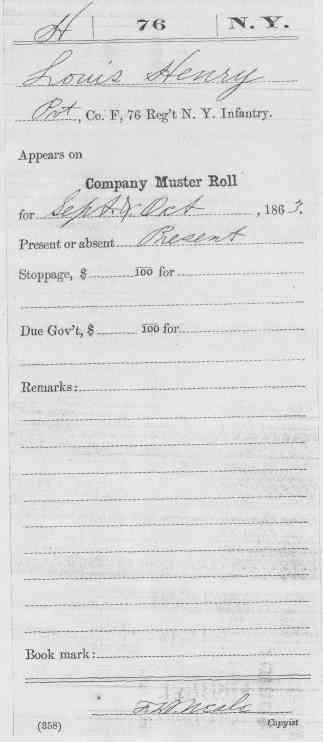 H | 76 | N. Y.
Louis Henry
Pvt, Co. F, 76 Reg't N. Y. Infantry.
Appears on
Company Muster Roll
for Sept & Oct, 1863.
Present or absent Present
Stoppage, $ 100 for
Due Gov't, $ 100 for
Remarks:
Book mark:
(358) Copyist